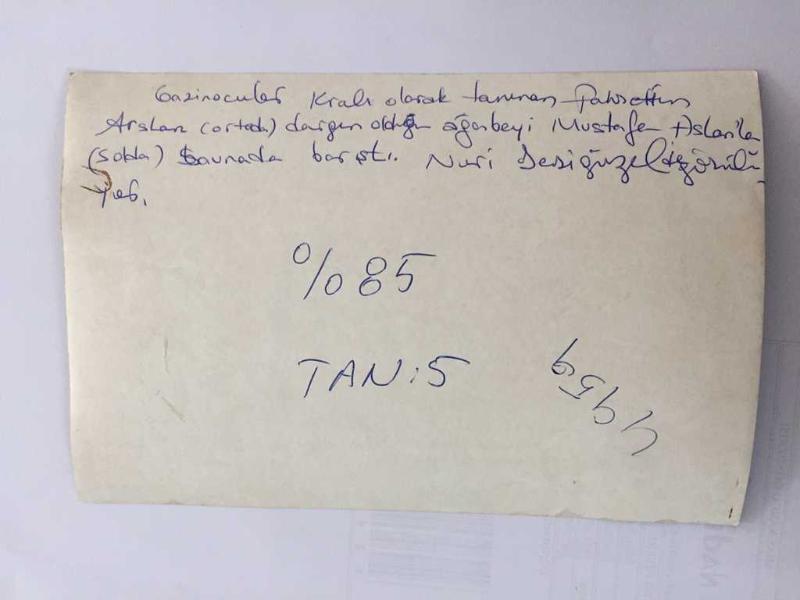 Gazinocular Kralı olarak tanınan Fahrettin
Arslan (ortada) dargın olduğu ağabeyi Mustafa Aslan'la
(solda) Saunada barıştı. Nuri Sesigüzel de görülü-
yor.
%85
TAN:5